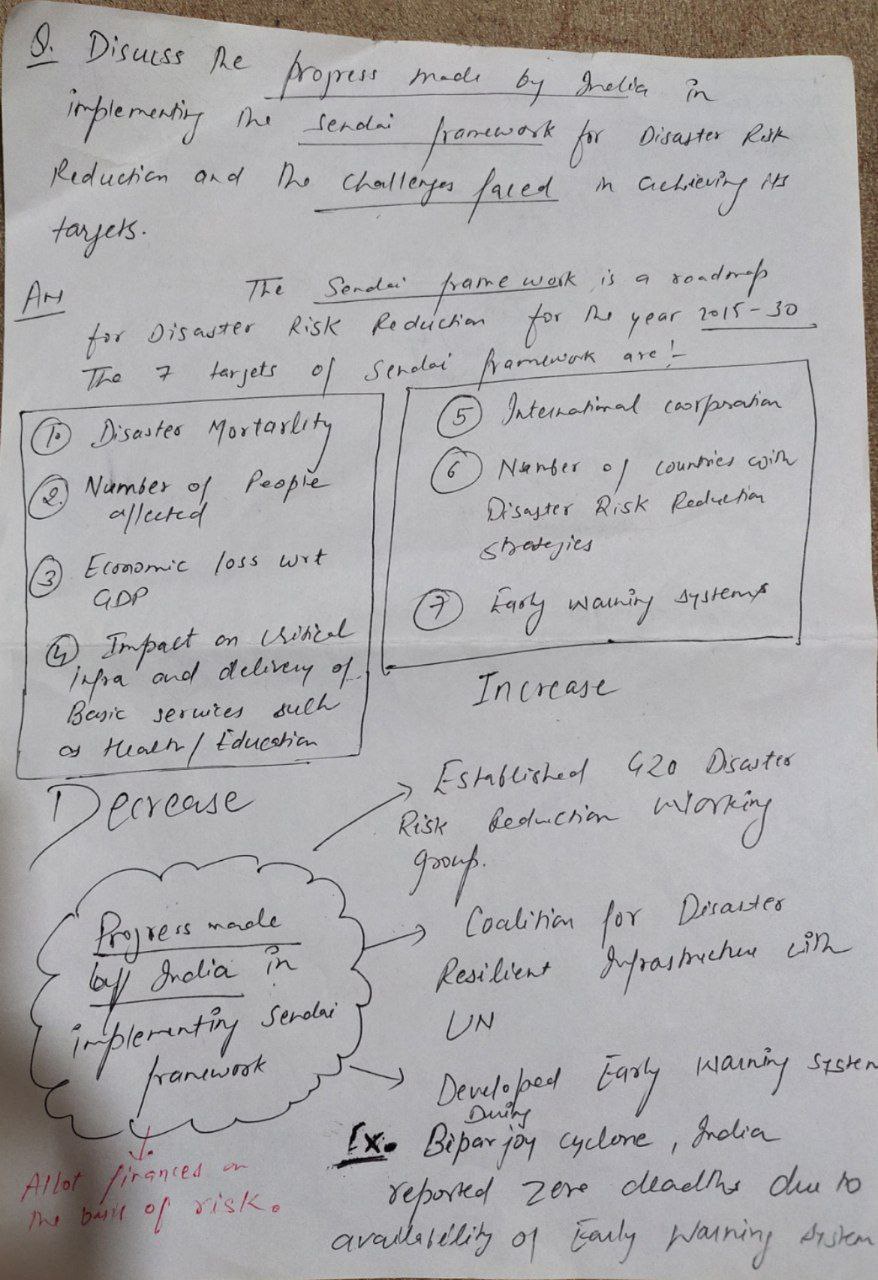 Q. Discuss the progress made by India in
implementing the Sendai framework for Disaster Risk
Reduction and the challenges faced in achieving its
targets.
Ans
The Sendai framework is a roadmap
for Disaster Risk Reduction for the year 2015-30
The 7 targets of Sendai framework are:-
① Disaster Mortarlity
② Number of People
affected
③ Economic loss wrt
GDP
④ Impact on critical
infra and delivery of
Basic services such
as Health/Education
Decrease
⑤ International coorporation
⑥ Number of countries with
Disaster Risk Reduction
strategies
⑦ Early warning systems
Increase
Progress made
by India in
implementing Sendai
framework
→ Established G20 Disaster
Risk Reduction Working
group.
→ Coalition for Disaster
Resilient Infrastructure with
UN
→ Developed Early Warning System
During
Ex. Biparjoy cyclone, India
reported zero deadths due to
availability of Early Warning System
Allot finances on
the basis of risk.